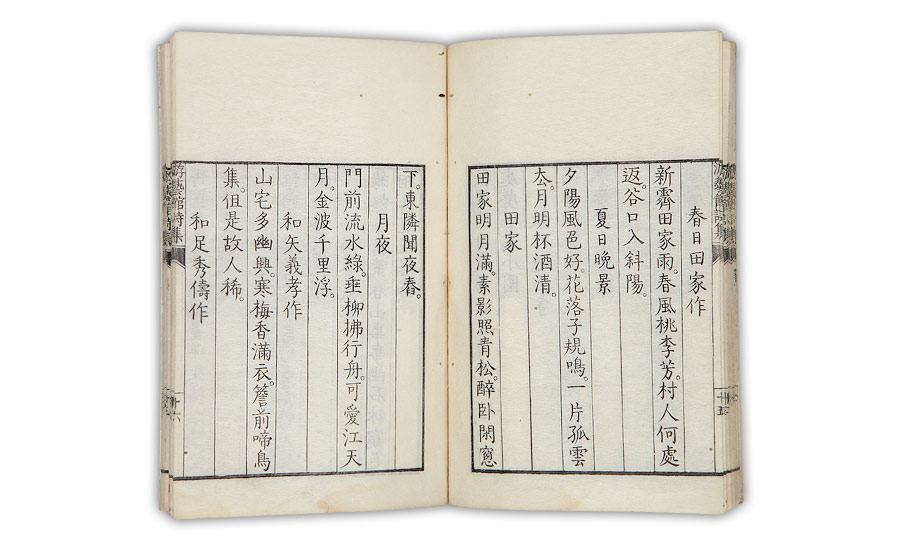 春日田家作
新霽田家雨。春風桃李芳。村人何處
返。谷口入斜陽。
夏日晩景
夕陽風色好。花落子規鳴。一片孤雲
去。月明杯酒清。
田家
田家明月滿。素影照青松。醉卧閑窓
下。東隣聞夜舂。
月夜
門前流水綠。垂柳拂行舟。可愛江天
月。金波千里浮。
和矢義孝作
山宅多幽興。寒梅香滿衣。簷前啼鳥
集。但是故人稀。
和足秀儔作
游藝館詩集
十五
游藝館詩集
十六